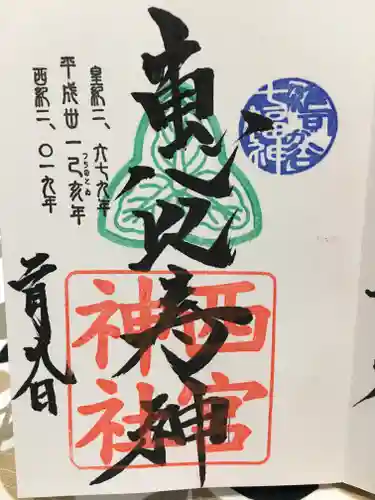 七福神
恵比寿神
西宮
神社
皇紀二、六七九年
平成卅一己亥年
つちのとゐ
西紀二、〇一九年
月八日